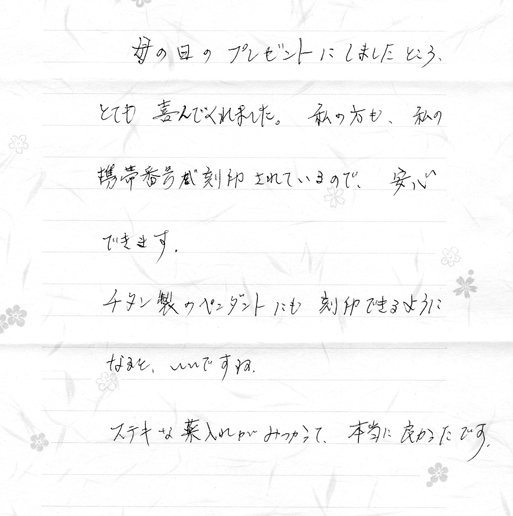 母の日のプレゼントにしましたところ、
とても喜んでくれました。私の方も、私の
携帯番号が刻印されているので、安心
できます。
チタン製のペンダントにも刻印できるように
なると、いいですね。
ステキな薬入れがみつかって、本当に良かったです。